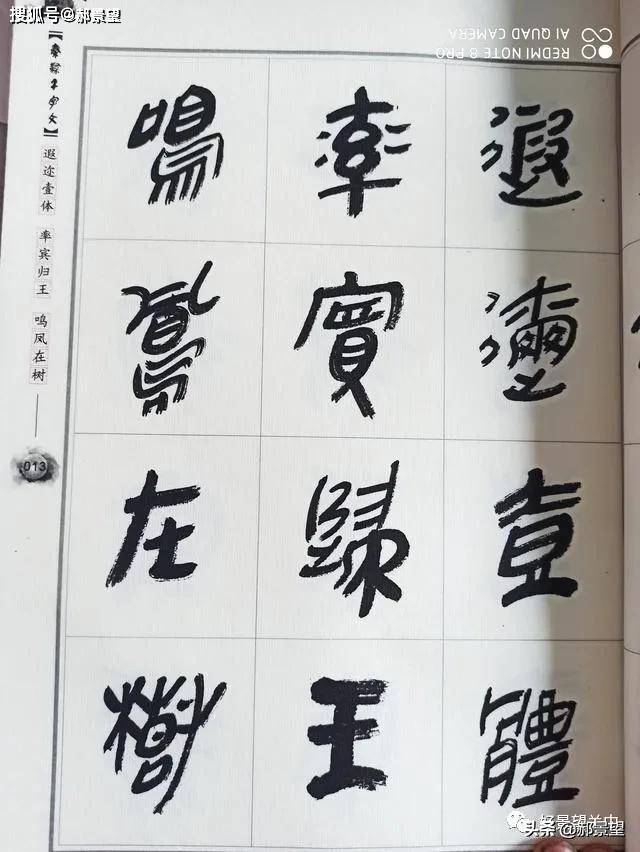 搜狐号@郝景望
REDMI NOTE 8 PRO
AI QUAD CAMERA
遐邇壹體
率賓歸王
鳴鳳在樹
千字文
遐迩壹体 率宾归王 鸣凤在树
013
好景望关中
头条@郝景望